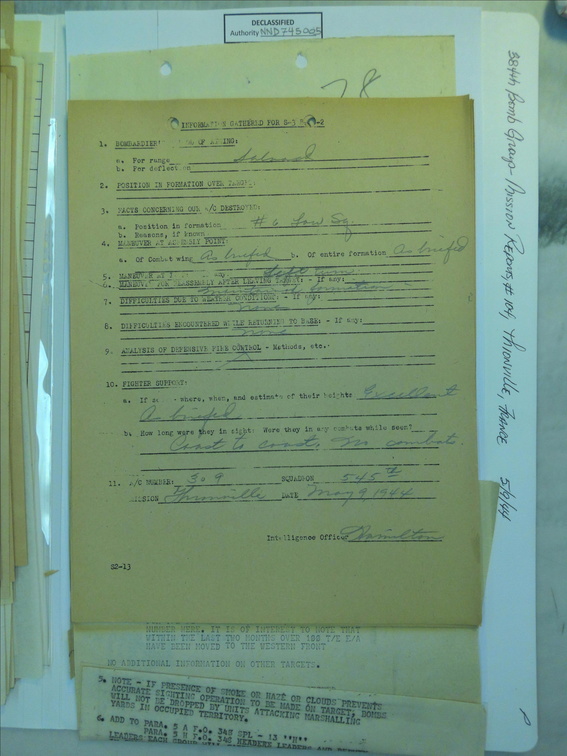 DECLASSIFIED
Authority NND745005
28
INFORMATION GATHERED FOR S-3
1. BOMBARDIER' OF AIMING:
a. For range Salvoed
b. For deflection
2. POSITION IN FORMATION OVER TARGET:
3. FACTS CONCERNING OUR A/C DESTROYED:
a. Position in formation #6 Low Sq.
b. Reasons, if known
4. MANEUVER AT ASSEMBLY POINT:
a. Of Combat wing As briefed b. Of entire formation As briefed
5. MANEUVER AT any. Left turn
6. MANEUVER FOR REASSEMBLY AFTER LEAVING TARGET: - If any:
formation
7. DIFFICULTIES DUE TO WEATHER CONDITIONS: - If any:
none
8. DIFFICULTIES ENCOUNTERED WHILE RETURNING TO BASE: - If any:
none
9. ANALYSIS OF DEFENSIVE FIRE CONTROL - Methods, etc.
10. FIGHTER SUPPORT:
a. If so - where, when, and estimate of their heights Excellent
As briefed
b. How long were they in sight? Were they in any combats while seen?
Coast to coast. No combat.
11. A/C NUMBER: 309 SQUADRON 545th
MISSION Thionville DATE May 9, 1944
Intelligence Officer Hamilton
S2-13
NUMBER WERE. IT IS OF INTEREST TO NOTE THAT
WITHIN THE LAST TWO MONTHS OVER 100 T/E E/A
HAVE BEEN MOVED TO THE WESTERN FRONT
NO ADDITIONAL INFORMATION ON OTHER TARGETS.
5. NOTE - IF PRESENCE OF SMOKE OR HAZE OR CLOUDS PREVENTS
ACCURATE SIGHTING OPERATION TO BE MADE ON TARGET, BOMBS
WILL NOT BE DROPPED BY UNITS ATTACKING MARSHALLING
YARDS IN OCCUPIED TERRITORY.
6. ADD TO PARA. 5 A F.O. 348 SPL - 13 "H"
PARA. 5 H F.O. 348 LEADERS AND
LEADERS EACH GROUP
384th Bomb Group - Mission Reports, #104, Thionville, France 5/9/44